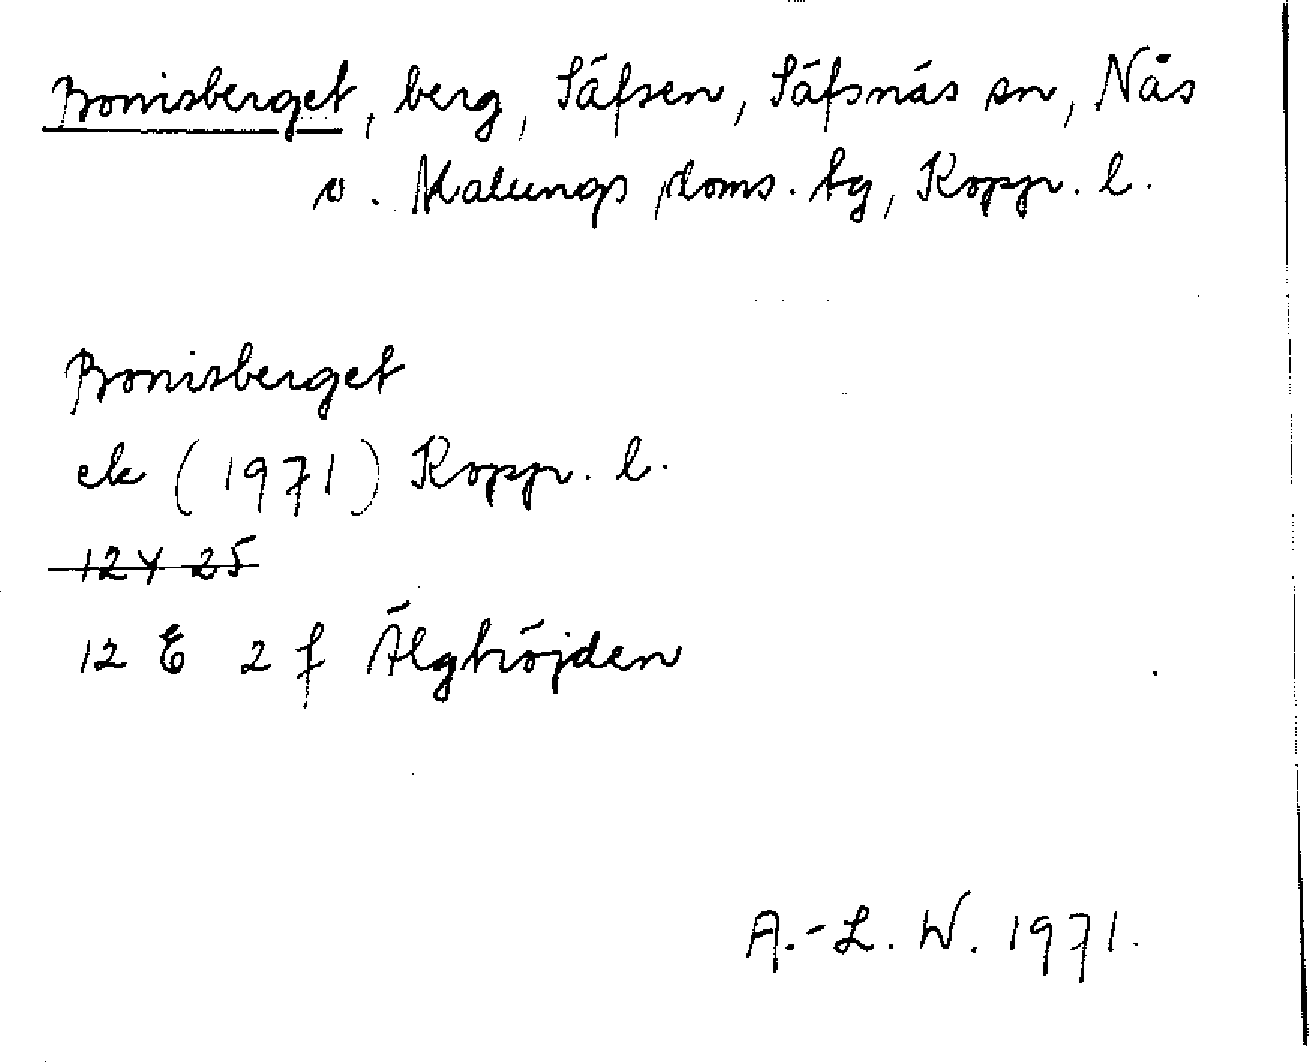 Bonisberget, berg, Säfsen, Säfsnäs sn, Nås
o. Malungs doms. bg, Kopp. l.
Bonisberget
ek (1971) Kopp. l.
12Y 25
12 E 2 f Älghöjden
A.-L. W. 1971.